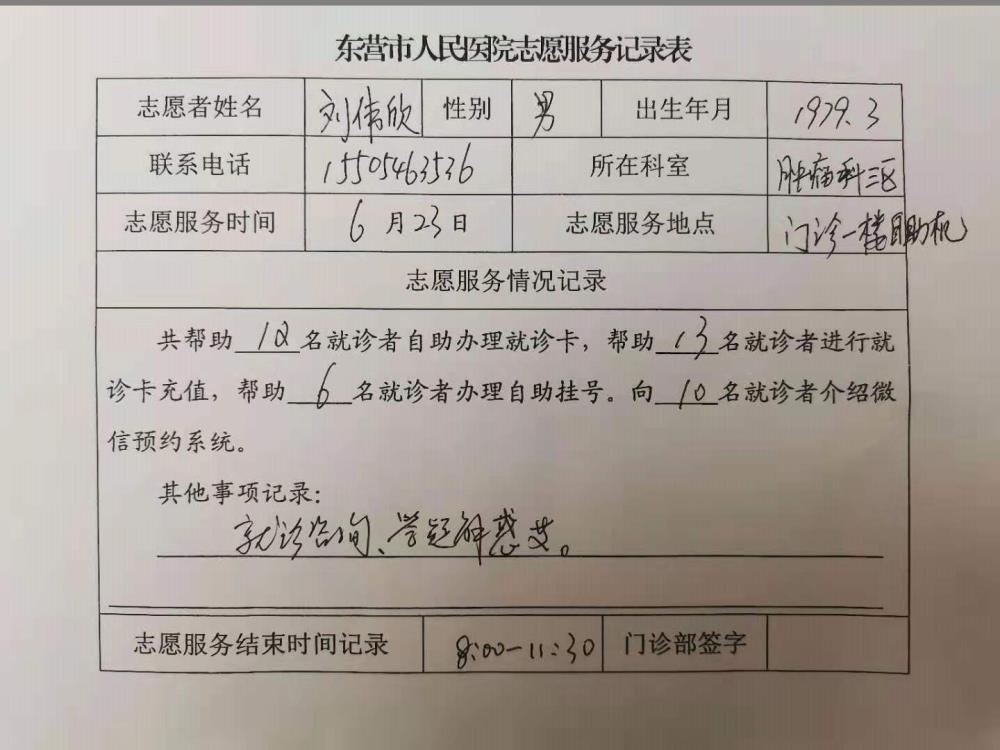 东营市人民医院志愿服务记录表
志愿者姓名 刘伟欣 性别 男 出生年月 1979.3
联系电话 15505463536 所在科室 肿瘤科三区
志愿服务时间 6月23日 志愿服务地点 门诊一楼自助机
志愿服务情况记录
共帮助12名就诊者自助办理就诊卡，帮助13名就诊者进行就
诊卡充值，帮助6名就诊者办理自助挂号。向10名就诊者介绍微
信预约系统。
其他事项记录：
就诊咨询、解惑
志愿服务结束时间记录 8:00-11:30 门诊部签字